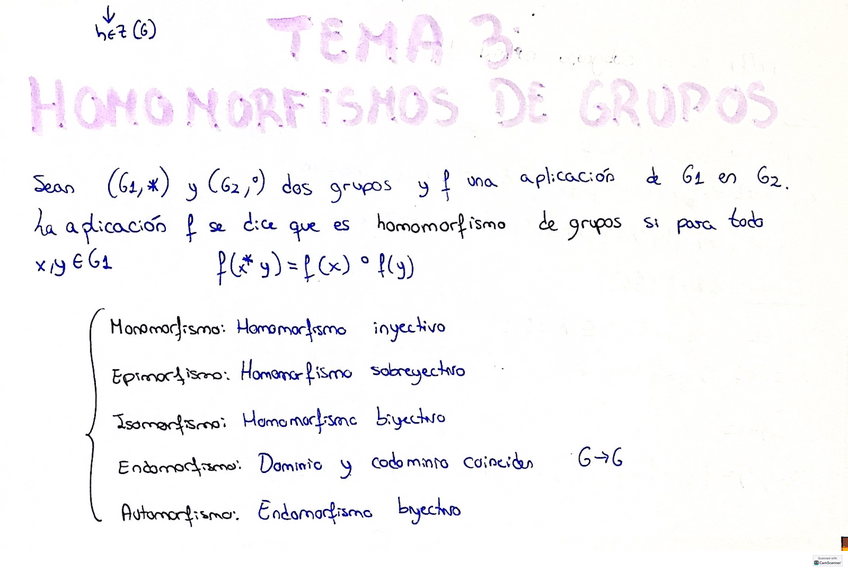 ↓
h∈Z(G)
TEMA 3:
HOMOMORFISMOS DE GRUPOS
Sean (G1,*) y (G2,°) dos grupos y f una aplicación de G1 en G2.
La aplicación f se dice que es homomorfismo de grupos si para todo
x,y ∈ G1 f(x*y)=f(x)°f(y)
Monomorfismo: Homomorfismo inyectivo
Epimorfismo: Homomorfismo sobreyectivo
Isomorfismo: Homomorfismo biyectivo
Endomorfismo: Dominio y codominio coinciden G→G
Automorfismo: Endomorfismo biyectivo
Scanned with
CamScanner